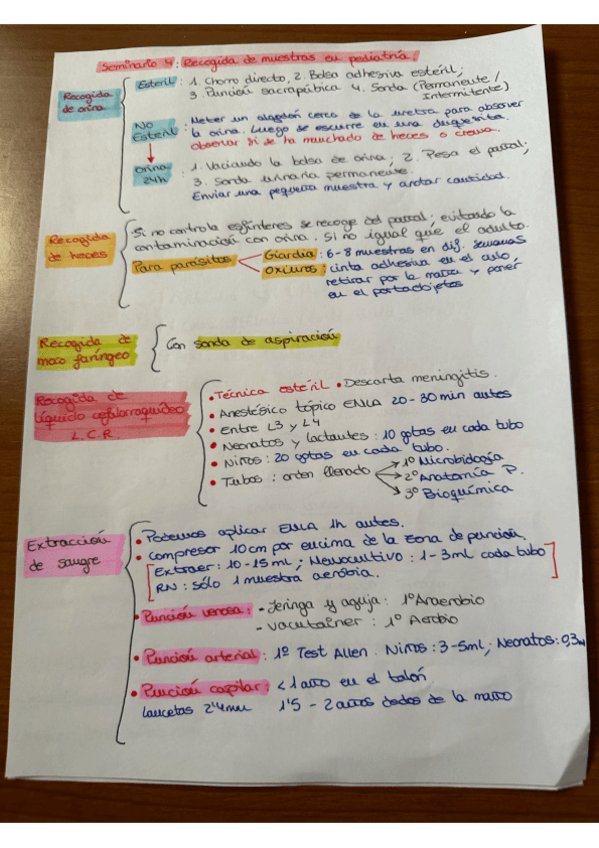 Seminario 4: Recogida de muestras en pediatría.
Recogida de orina
Estéril: 1. Chorro directo, 2. Bolsa adhesiva estéril,
3. Punción suprapúbica 4. Sonda (Permanente /
Intermitente)
No Estéril: Meter un algodón cerca de la uretra para absorver
la orina. Luego se escurre en una
observar si se ha manchado de heces o crema.
Orina 24h: 1. Vaciando la bolsa de orina; 2. Pesa el pañal;
3. Sonda urinaria permanente.
Enviar una pequeña muestra y anotar cantidad.
Recogida de heces
Si no controla esfínteres se recoge del pañal, evitando la
contaminación con orina. Si no igual que el adulto.
Para parásitos
Giardia: 6-8 muestras en dif. semanas
Oxiuros: cinta adhesiva en el culo,
retirar por la mañana y poner
en el portaobjetos
Recogida de moco faríngeo
Con sonda de aspiración
Recogida de líquido cefalorraquídeo L.C.R.
• Técnica estéril • Descarta meningitis.
• Anestésico tópico EMLA 20-30 min antes
• Entre L3 y L4
• Neonatos y lactantes: 10 gotas en cada tubo
• Niños: 20 gotas en cada tubo.
• Tubos: orden llenado
1º Microbiología
2º Anatomía P.
3º Bioquímica
Extracción de sangre
• Podemos aplicar EMLA 1h antes.
• Compresor 10 cm por encima de la zona de punción.
[Extraer: 10-15 ml; Hemocultivo: 1-3 ml cada tubo
RN: sólo 1 muestra aerobia.]
• Punción venosa: - Jeringa y aguja: 1º Anaerobio
- Vacutainer: 1º Aerobio
• Punción arterial: 1º Test Allen. Niños: 3-5ml; Neonatos: 0,3
• Punción capilar: < 1 año en el talón
Lancetas 2'4mm 1'5 - 2 años dedos de la mano